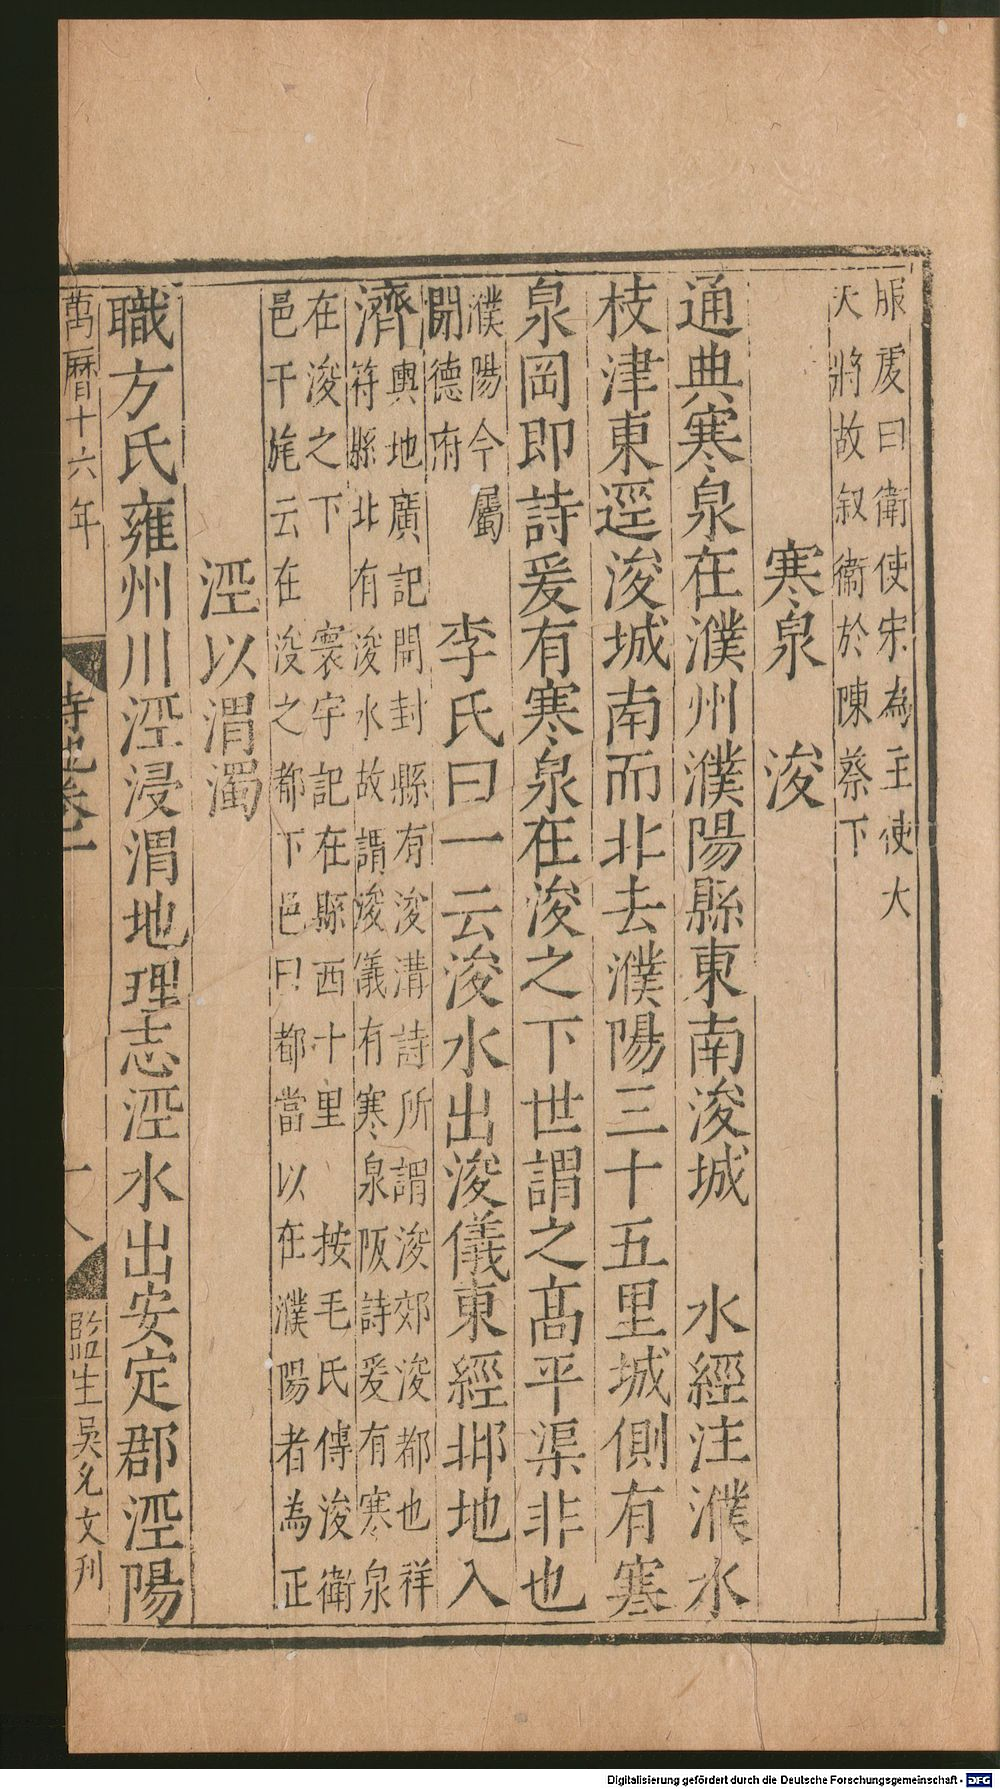 服虔曰衛使宋為主使大
夫將故叙衞於陳蔡下
寒泉　浚
通典寒泉在濮州濮陽縣東南浚城　水經注濮水
枝津東逕浚城南而北去濮陽三十五里城側有寒
泉岡即詩爰有寒泉在浚之下世謂之高平渠非也
濮陽今屬
開德府
李氏曰一云浚水出浚儀東經邶地入
濟
輿地廣記開封縣有浚溝詩所謂浚郊浚都也祥
符縣北有浚水故謂浚儀有寒泉阪詩爰有寒泉
在浚之下　寰宇記在縣西十里　按毛氏傳浚衛
邑干旄云在浚之都下邑曰都當以在濮陽者為正
涇以渭濁
職方氏雍州川涇浸渭地理志涇水出安定郡涇陽
萬曆十六年
監生吳允文刋
Digitalisierung gefördert durch die Deutsche Forschungsgemeinschaft - DFG